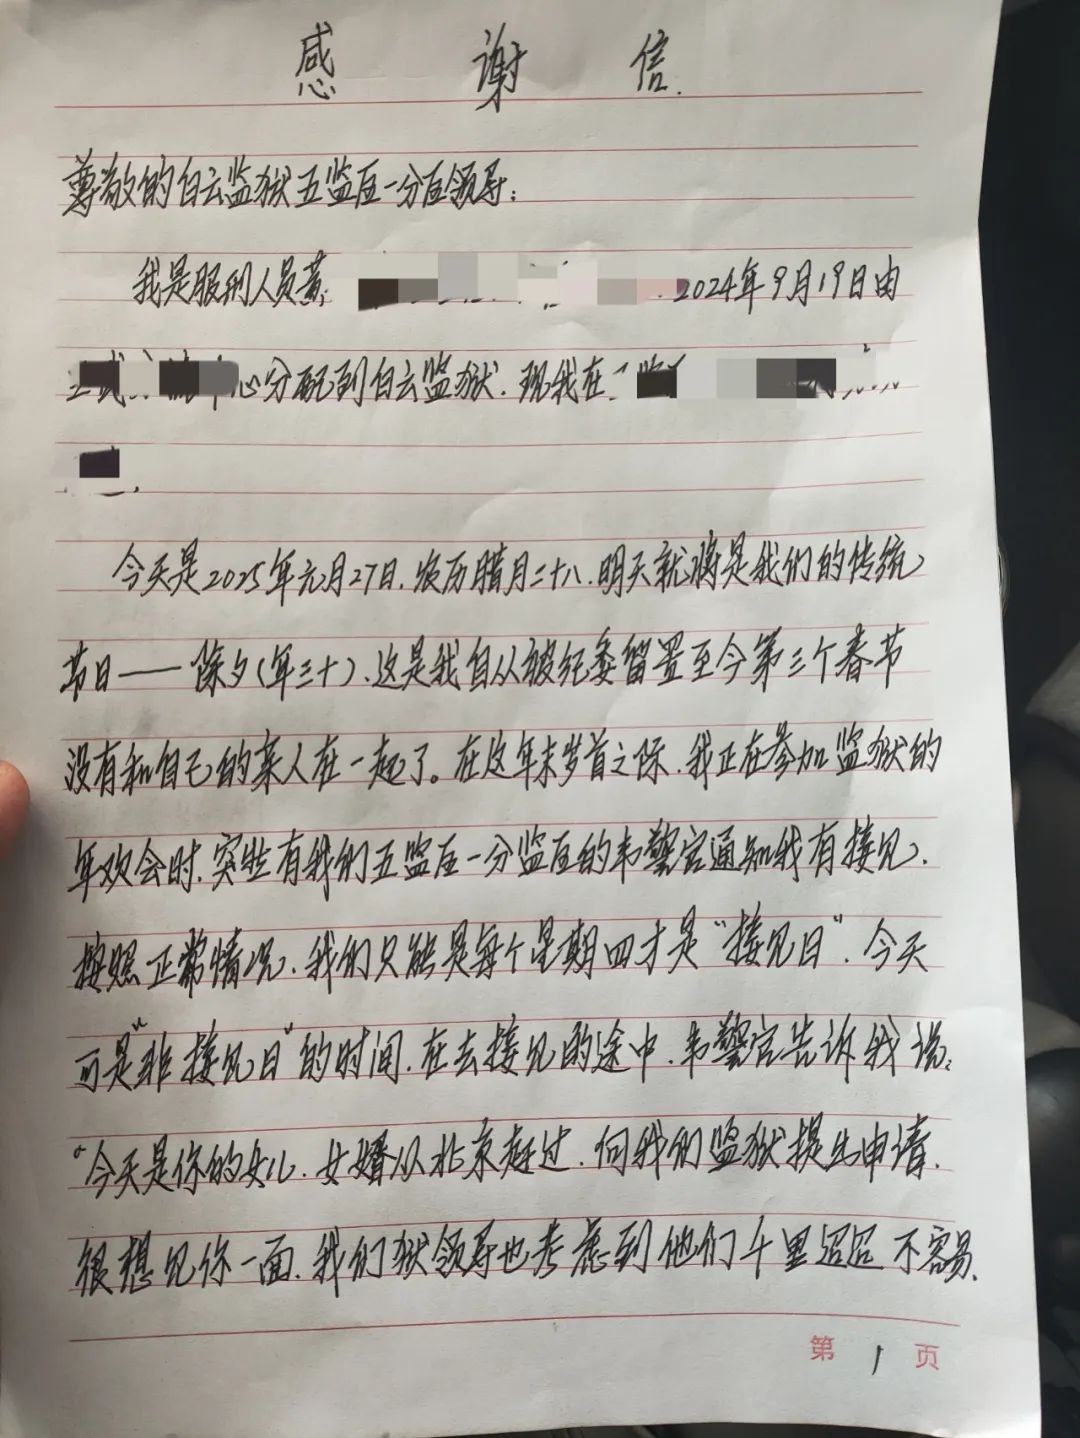 感谢信.
尊敬的白云监狱五监区一分区领导:
我是服刑人员黄 2024年9月19日由
心分配到白云监狱.现我在
今天是2025年元月27日.农历腊月二十八.明天就将是我们的传统
节日——除夕(年三十).这是我自从被纪委留置至今第三个春节
没有和自己的亲人在一起了。在这年末岁首之际.我正在参加监狱的
年欢会时.突然有我们五监区一分监区的韦警官通知我有接见.
按照正常情况.我们只能是每个星期四才是“接见日”.今天
可是“非接见日”的时间.在去接见的途中.韦警官告诉我说:
“今天是你的女儿.女婿从北京赶过.向我们监狱提出申请.
很想见你一面.我们狱领导也考虑到他们千里迢迢不容易.
第1页